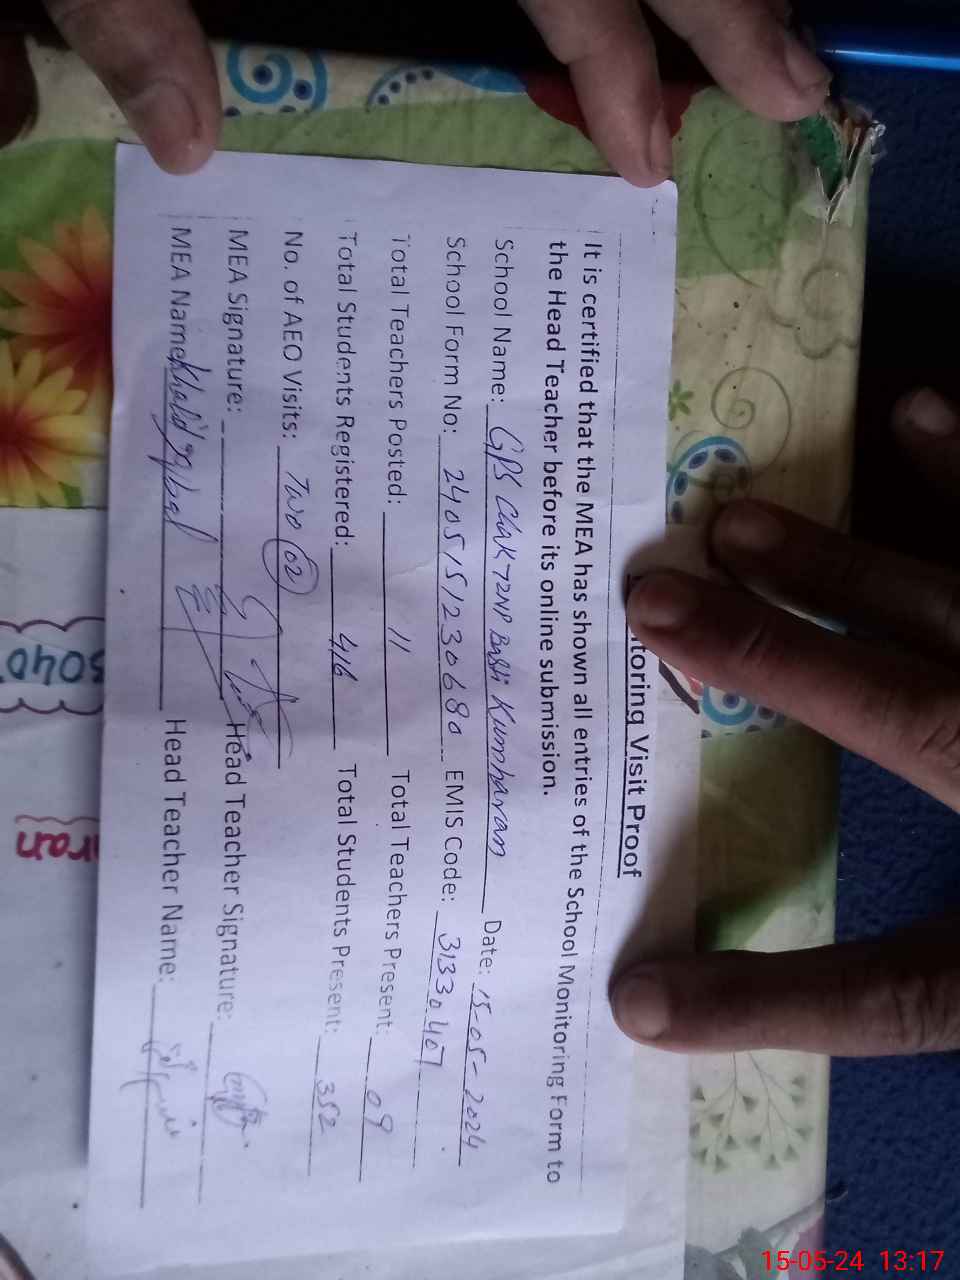 itoring Visit Proof
It is certified that the MEA has shown all entries of the School Monitoring Form to
the Head Teacher before its online submission.
School Name: GPS Chak 72NP Basti Kumharan Date: 15-05-2024
School Form No: 2405151230680 EMIS Code: 31330407
Total Teachers Posted: 11 Total Teachers Present: 09
Total Students Registered: 416 Total Students Present: 352
No. of AEO Visits: Two (02)
MEA Signature: Head Teacher Signature:
MEA Name: Khalid Iqbal Head Teacher Name:
3040
iran
15-05-24 13:17